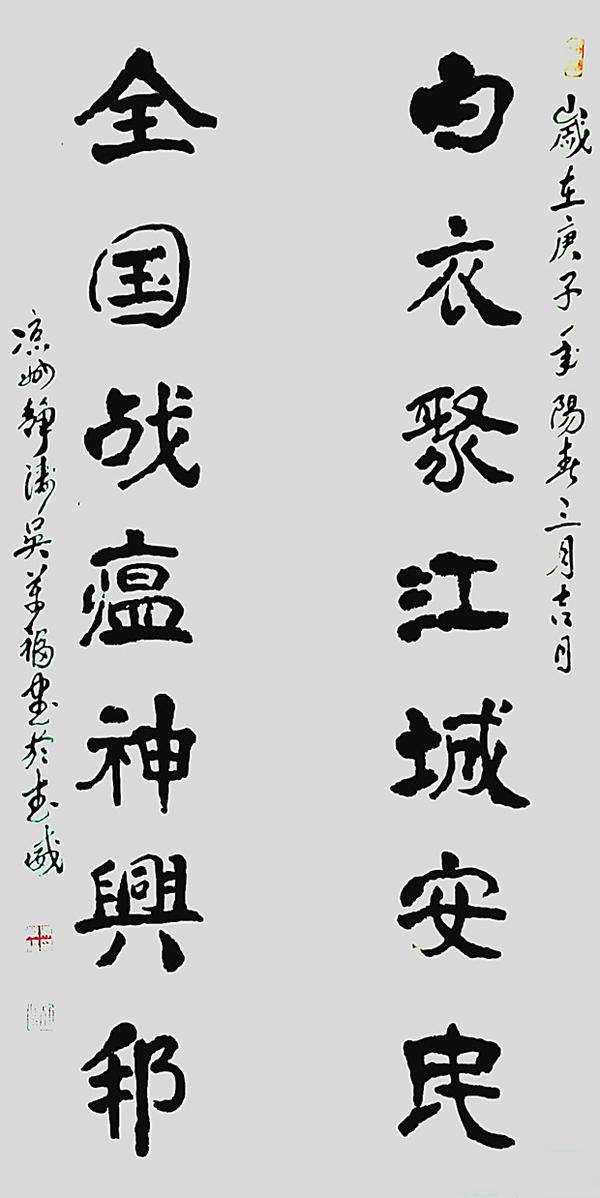 歲在庚子年陽春三月吉日
白衣聚江城安民
全国战瘟神興邦
凉州靜濤吳萬福書於武威